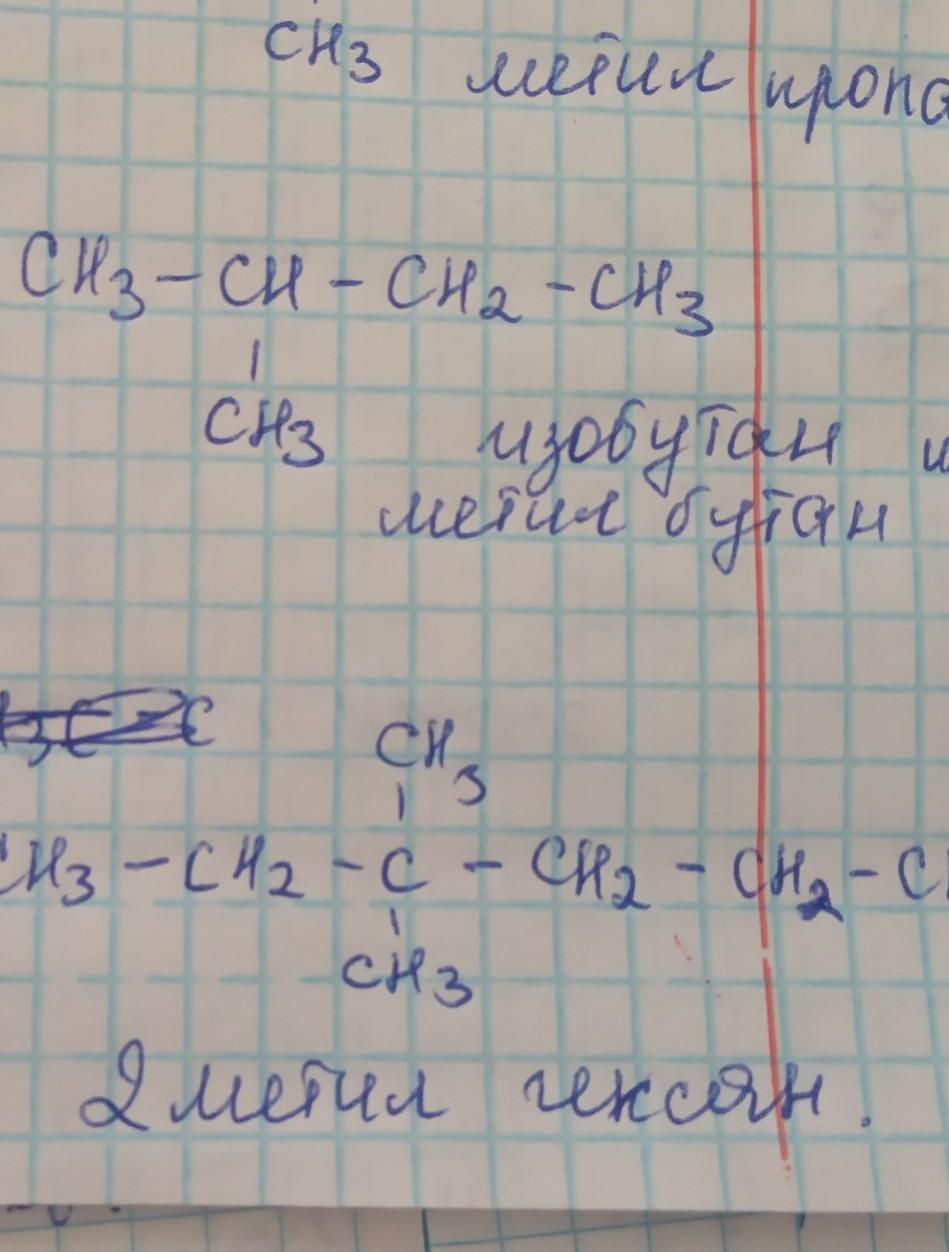 CH3 метил пропа
CH3 – CH – CH2 – CH3
|
CH3 изобутан и
метил бутан
CH3
|
CH3 – CH2 – C – CH2 – CH2 – C
|
CH3
2 метил гексан.